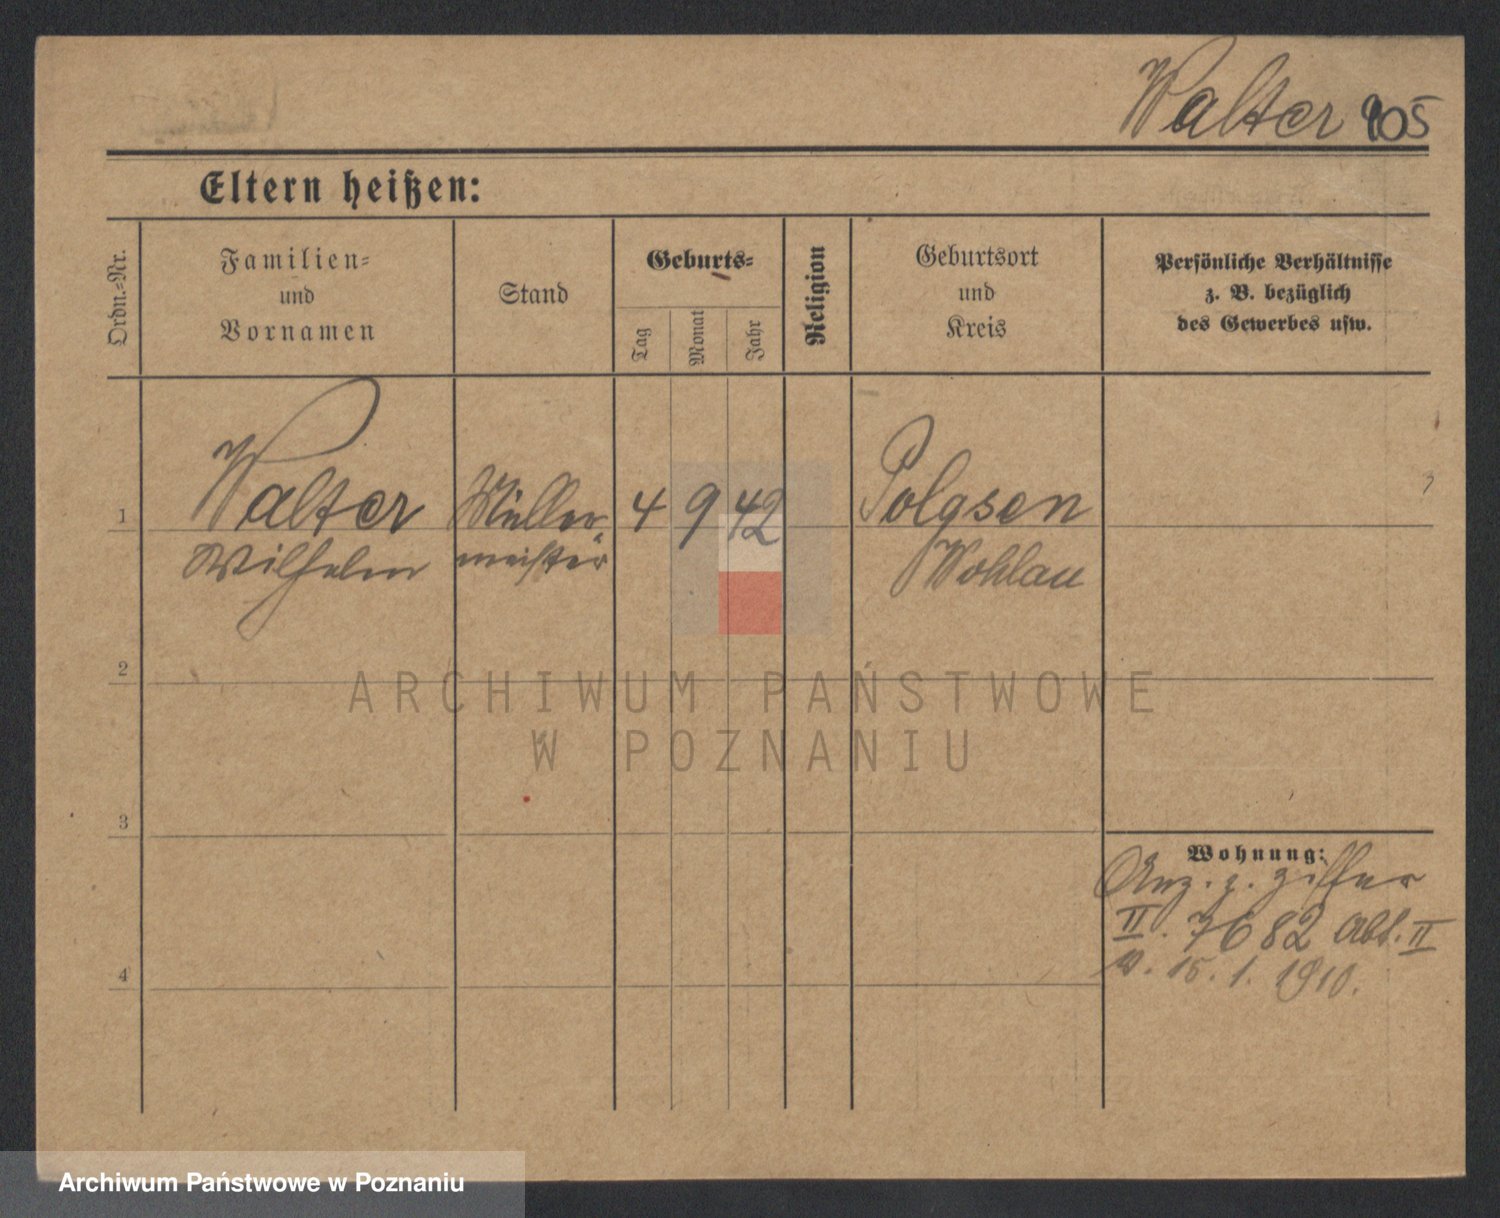 Walter 905
Eltern heißen:
Ordn.-Nr.
Familien-
und
Vornamen
Stand
Geburts-
Tag
Monat
Jahr
Religion
Geburtsort
und
Kreis
Persönliche Verhältnisse
z. B. bezüglich
des Gewerbes usw.
1 Walter Müller 4 9 42 Polgsen
Wilhelm meister Wohlau
2
ARCHIWUM PAŃSTWOWE
W POZNANIU
3
Wohnung:
Anz. z. Ziffer
II. 7682 Abt. II
v. 15. 1. 1910.
4
Archiwum Państwowe w Poznaniu